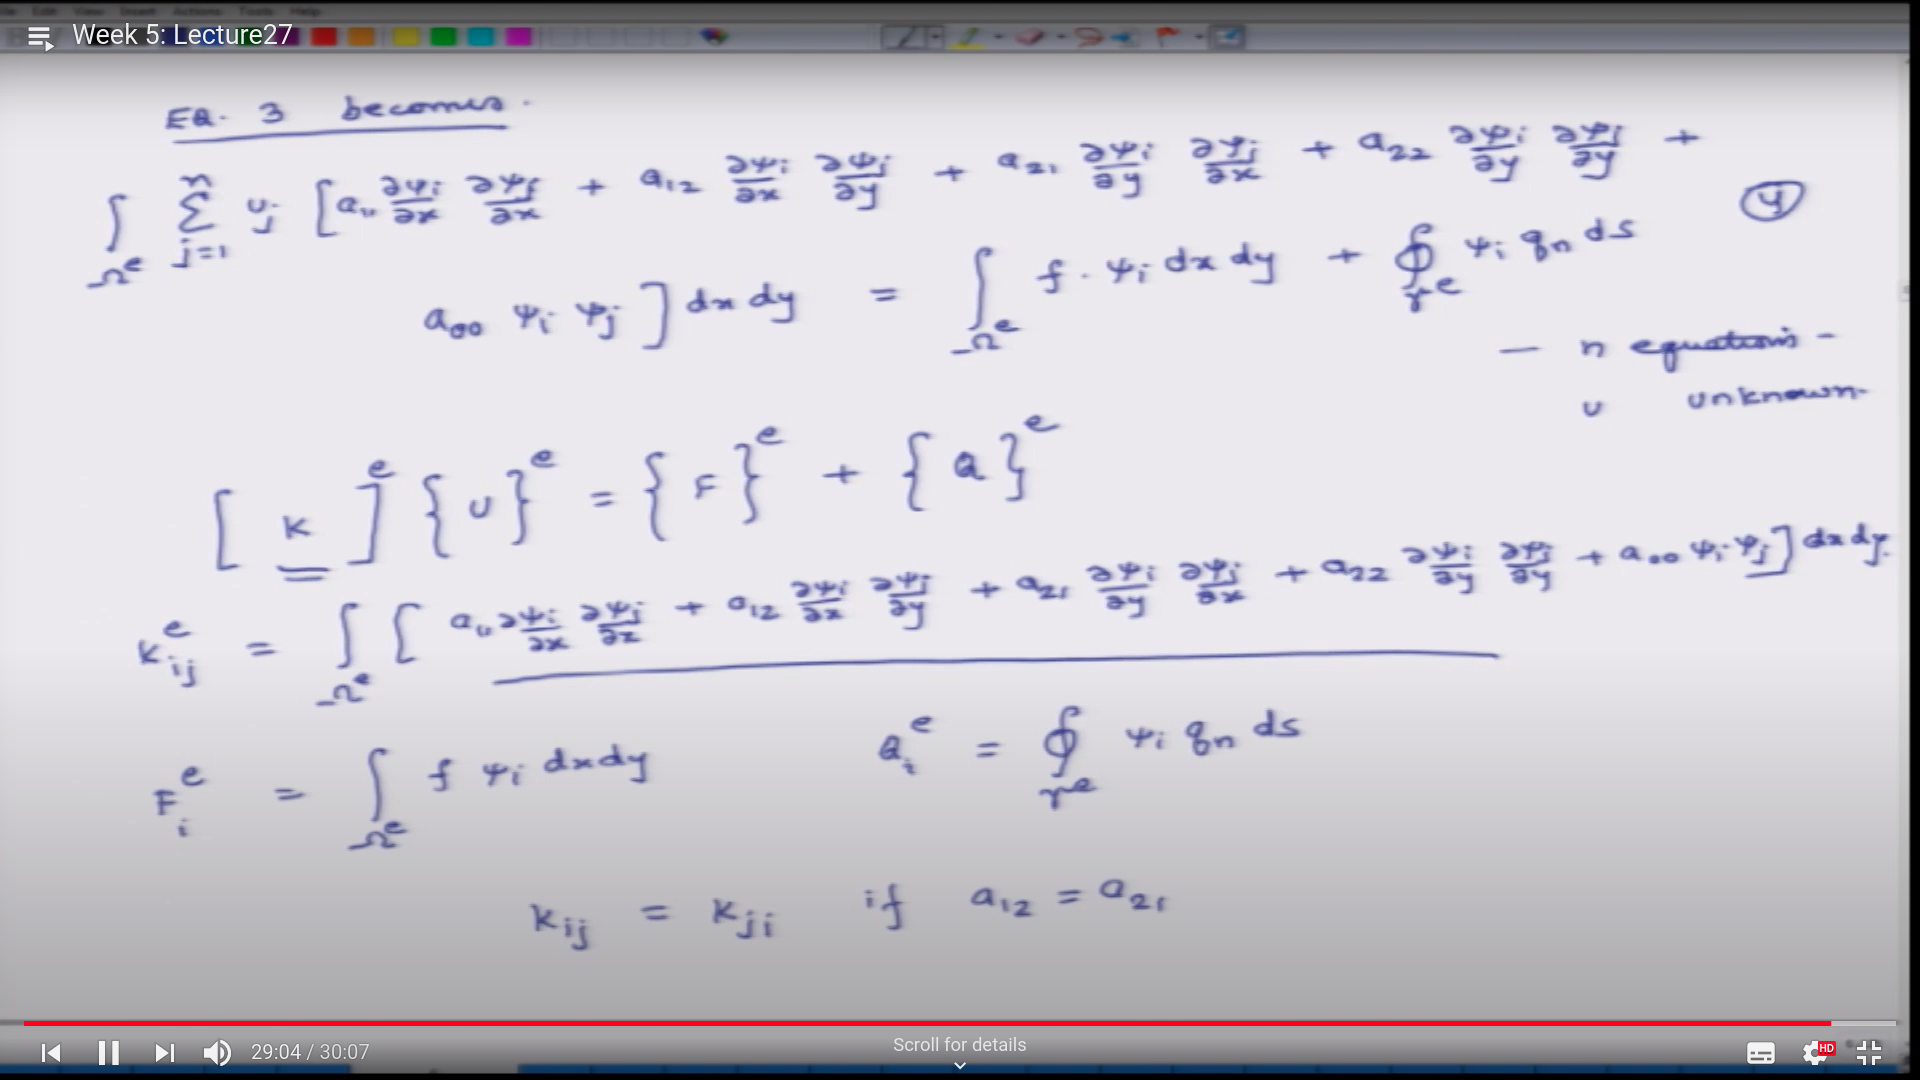 File Edit View Insert Actions Tools Help
Week 5: Lecture27
EQ. 3 becomes.
∫_Ω^e Σ_{j=1}^n u_j [a₁₁ ∂ψi/∂x ∂ψj/∂x + a₁₂ ∂ψi/∂x ∂ψj/∂y + a₂₁ ∂ψi/∂y ∂ψj/∂x + a₂₂ ∂ψi/∂y ∂ψj/∂y +
a₀₀ ψi ψj ] dx dy = ∫_Ω^e f · ψi dx dy + ∮_Γ^e ψi qn ds ④
— n equations -
u unknown.
[K]^e {U}^e = {F}^e + {Q}^e
K_ij^e = ∫_Ω^e [ a₁₁ ∂ψi/∂x ∂ψj/∂x + a₁₂ ∂ψi/∂x ∂ψj/∂y + a₂₁ ∂ψi/∂y ∂ψj/∂x + a₂₂ ∂ψi/∂y ∂ψj/∂y + a₀₀ ψi ψj ] dx dy.
F_i^e = ∫_Ω^e f ψi dx dy Q_i^e = ∮_Γ^e ψi qn ds
K_ij = K_ji if a₁₂ = a₂₁
29:04 / 30:07
Scroll for details
HD